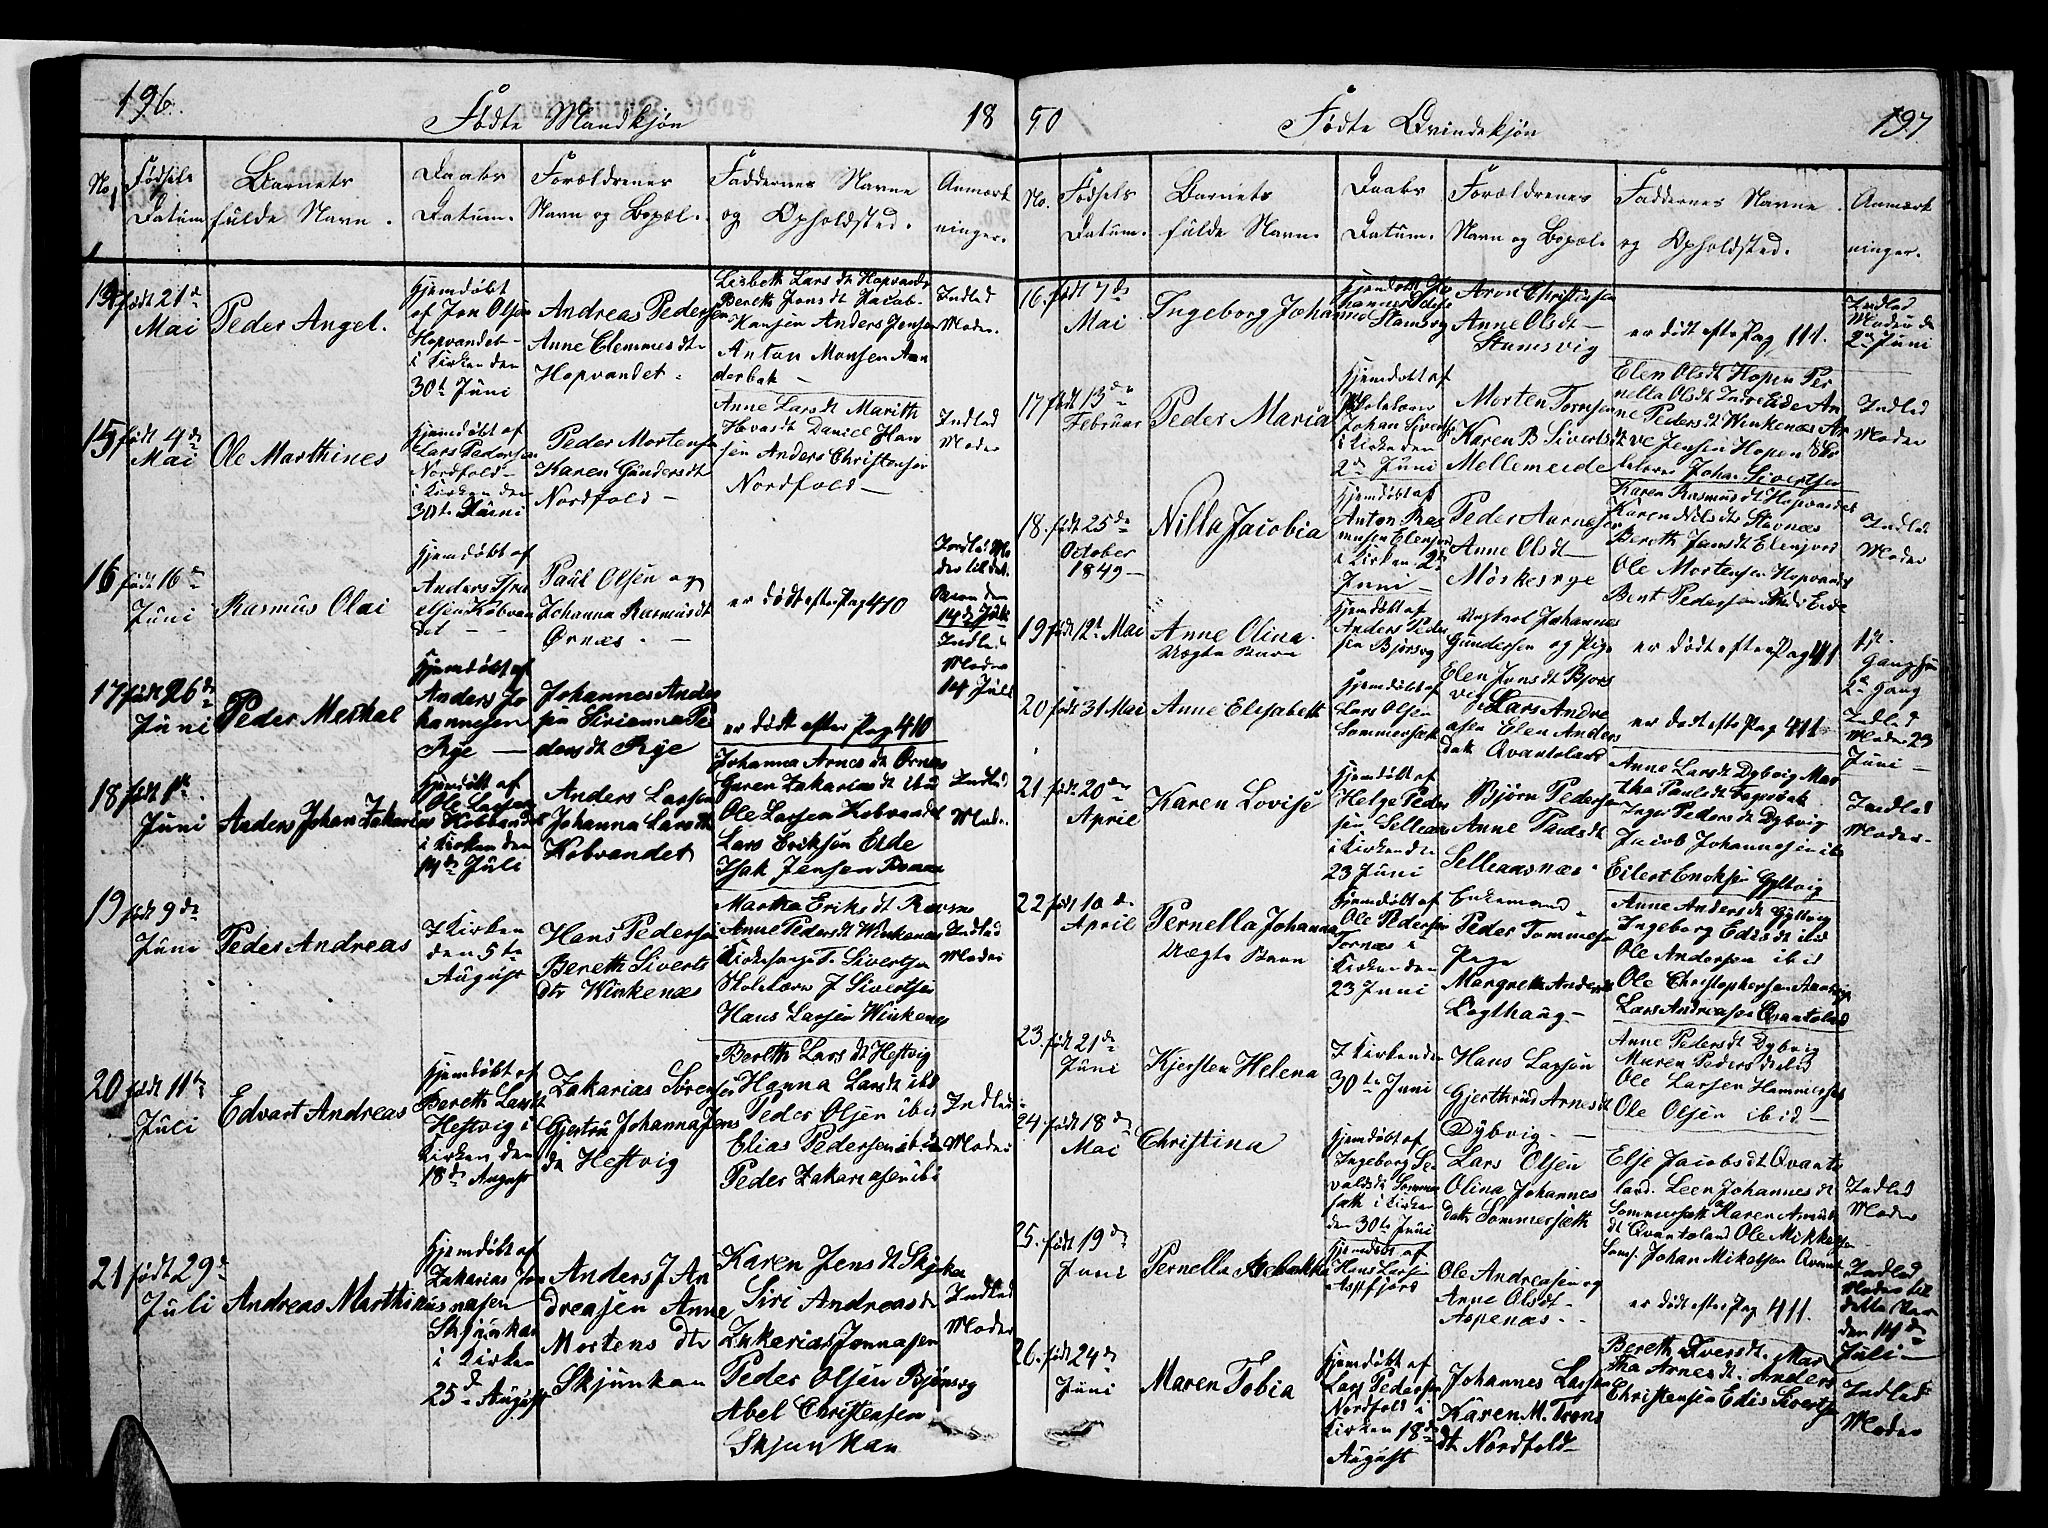 196.
Fødte Mandkjøn
18
No
Fødsels
Datum
Barnets
fulde Navn.
Daabs
Datum.
Forældrenes
Navn og Bopæl.
Faddernes Navne
og Opholdsted.
Anmærk
ninger.
født 21de
Mai
Peder Angel.
Hjemdøbt
af Jon Olsen
Hopvandet
i Kirken den
30te Juni
Andreas Pedersen
Anne Clemmesdtr
Hopvandet.
Lisbeth Larsdt Hopvandet
Bereth Jonsdt Jacob
Hansen Anders Jensen
Anton Monsen Aan
derbak
Indled
Moder.
15
født 4de
Mai
Ole Marthines
Hjemdøbt af
Lars Pedersen
Nordfold
i Kirken den
30te Juni
Peder Mortensen
Karen Gundersdt
Nordfold
Anne Larsdt Marith
Hansdt Daniel Han
sen Anders Christensen
Nordfold
Indled
Moder
16
født 16de
Juni
Rasmus Olai
Hjemdøbt af
Anders Isra
elsen Kobvan
det
Paul Olsen og
Johanna Rasmusdt
Ørnæs.
er død efter Pag 410
Indled Mo
der til det
Barn den
14de Juli
Indled
Moder
14 Juli
17
født 26de
Juni
Peder Meckal
Hjemdøbt af
Anders Jo
hannesen
Rye
Johannes Ander
sen Sirianna Pe
dersdt Rye
er død efter Pag 410
18
født 1te
Juni
Anders Johan Zakarias
Hjemdøbt af
Ole Larsen
Kobvandet
i Kirken den
14de Juli
Anders Larsen
Johanna Larsdt
Kobvandet
Johanna Arnesdt Ørnæs
Karen Zakariasdt ibid
Ole Larsen Kobvandet
Lars Eriksen Eide
Isak Jensen
Indled
Moder
19
født 9de
Juni
Peder Andreas
I Kirken
den 5te
August
Hans Pedersen
Bereth Siverts
dtr Winkenæs
Martha Eriksdt
Anne Pedersdt Winkenæs
Kirkesanger T. Sivertsen
Skolelærer J Sivertsen
Hans Larsen Winkenæs
Indled
Moder
20
født 11te
Juli
Edvart Andreas
Hjemdøbt af
Bereth Larsdt
Heftvig i
Kirken den
18de August
Zakarias Sørensen
Gjertru Johanna Jens
dt Heftvig
Bereth Larsdt Heftvig
Hanna Larsdt ibd
Peder Olsen ibid
Elias Pedersen ibid
Peder Zakariasen ibi
Indled
Moder
21
født 29de
Juli
Andreas Marthinus
Hjemdøbt af
Zakarias Jon
nasen
Skjunkan
i Kirken
25de August
Anders J An
dreasen Anne
Mortens dtr
Skjunkan
Karen Jens dt
Siri Andreasdt
Zakarias Jonnasen
Peder Olsen Bjørsvg
Abel Christensen
Skjunkan
Indled
Moder
50
Fødte Qvindekjøn
197.
No.
Fødsels
Datum.
Barnets
fulde Navn
Daabs
Datum.
Forældrenes
Navn og Bopæl.
Faddernes Navne
og Opholdsted.
Anmærk
ninger.
16.
født 7de
Mai
Ingeborg Johanna
Hjemdøbt
Stamsvg
Aron Christensen
Anne Olsdt
Stamsvig
er død efter Pag. 411.
Indled
Moder de
2de Juni
17
født 13de
Februar
Peder Maria
Hjemdøbt af
Skolelærer
Johan Sivertsen
i Kirken den
2de Juni
Morten Tornsen
Karen B Sivertsdt
Mellemeide
Elen Olsdt Hopen Per
nella Olsdt Indre Eide An
ne Pedersdt Winkenæs Ar
ve Jensen Hopen Sko
lelærer Johan Sivertsen
Indled
Moder
18.
født 25de
October
1849
Nilla Jacobia
Hjemdøbt af
Anton Ras
musen Elenfjord
i Kirken 2de
Juni
Peder Aarnesen
Anne Olsdt
Møskesrye
Karen Rasmusdt Hopvandet
Karen Nilsdt Stavnæs
Bereth Jonsdt Elenfjord
Ole Mortensen Hopvandet
Bent Pedersen Indre Eide
Indled
Moder
19
født 12te Mai
Anne Olina
Uægte Barn
Hjemdøbt af
Anders Peder
sen Bjørsvg
Ungkarl Johannes
Gundersen og Pige
Elen Jonsdt Bjørs
vig
er død efter Pag 411
1te
Gang hun
2de Gang
20
født 31 Mai
Anne Elisabeth
Hjemdøbt af
Lars Olsen
Sommersæth
Lars Andre
asen Elen Anders
datr Qvantoland
er død efter Pag 411
Indled
Moder 23
Juni
21
født 20de
April
Karen Lovise
Hjemdøbt af
Helge Peder
sen Selleaas
i Kirken den
23 Juni
Bjørn Pedersen
Anne Paulsdt
Selleaasnæs
Anne Larsdt Dybvig Mar
tha Paulsdt
Inger Pedersdt Dybvig
Jacob Johannesen ib
Eilert Enoksen Gyltvig
Indled
Moder
22
født 10de
April
Pernella Johanna
Uægte Barn
Hjemdøbt af
Ole Pedersen
Tornæs i
Kirken den
23 Juni
Enkemand
Peder Tommesen
Pige
Margreth Andersdt
Løgthaug
Anne Andersdt Gyltvig
Ingeborg Edisdt ibid
Ole Andersen ibid
Ole Christophersen
Lars Andreasen Qvantoland
23.
født 21de
Juni
Kjersten Helena
I Kirken den
30te Juni
Hans Larsen
Gjerthrud Arnesdt
Dybvig
Anne Pedersdt Dybvig
Maren Pedersdt ibid
Ole Larsen
Ole Olsen ibid
24.
født 18de
Mai
Christina
Hjemdøbt af
Ingeborg Se
valdsdt Sommer
sæth i Kirken
den 30te Juni
Lars Olsen
Olina Johannes
datr Sommersæth
Else Jacobsdt Qvanto
land. Leen Johannesdt
Sommersæth Karen Amund
dt Qvantoland Ole Mikkelsen
Soms. Johan Mikelsen Qvant
Indled
Moder
25.
født 19de
Juni
Pernella Rebekka
Hjemdøbt af
Hans Larsen
Ole Andreasen og
Anne Olsdt
Aspenæs
er død efter Pag 411.
Indled
Moder til
dette Barn
den 14de
Juli
26.
født 24de
Juni
Maren Tobia
Hjemdøbt af
Lars Pedersen
Nordfold i
Kirken 18de
August
Johannes Larsen
Karen M. Trons
dt Nordfold
Bereth Iversdt. Mar
tha Arnesdt. Anders
Christensen Edis Sivertsen
Indled
Moder